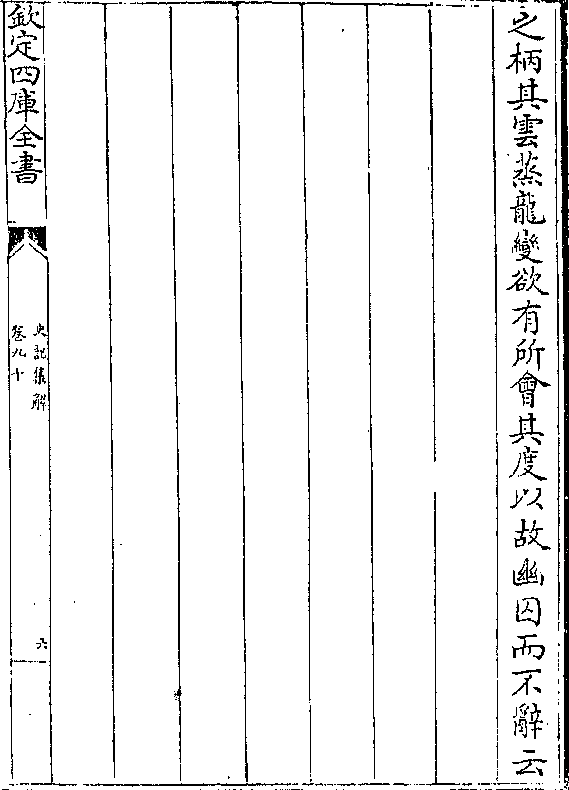 之柄其雲蒸龍變欲有所會其度以故幽囚而不辭云
欽定四庫全書
史記集解
卷九十
六